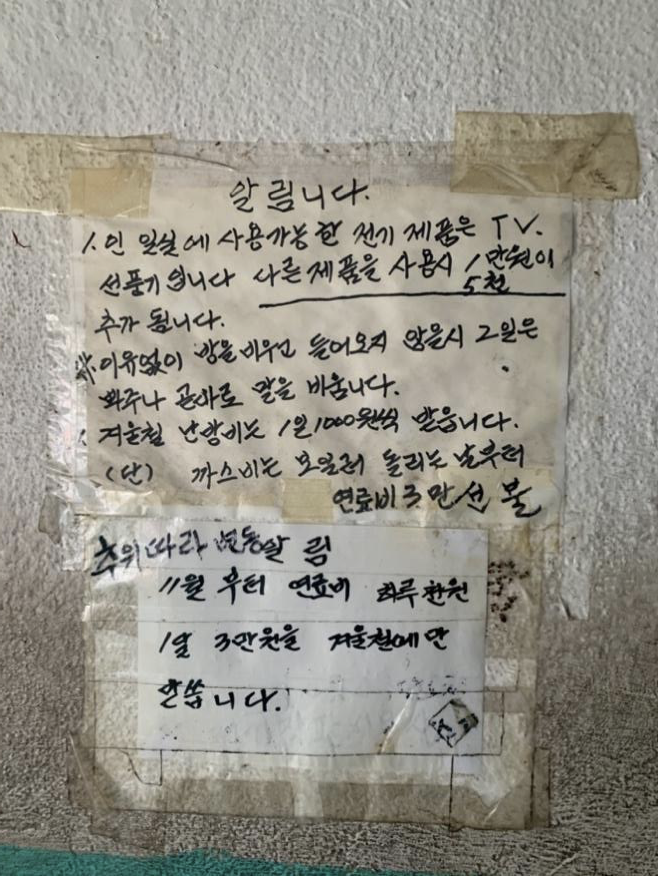 알림니다.
1. 인 일실에 사용가능한 전기 제품은 TV.
선풍기 입니다 다른 제품을 사용시 1만원이
5천
추가 됩니다.
이유없이 방을 비우고 들어오지 않을시 2일은
봐주나 곧바로 말을 바웁니다.
겨울철 난방비는 1일 1000원씩 받읍니다.
(단) 까스비는 보일러 돌리는 날부터
연료비 3만 선불
추위 따라 변동 알림
11월 부터 연료비 하루 천원
1달 3만원을 겨울철에만
받씁니다.